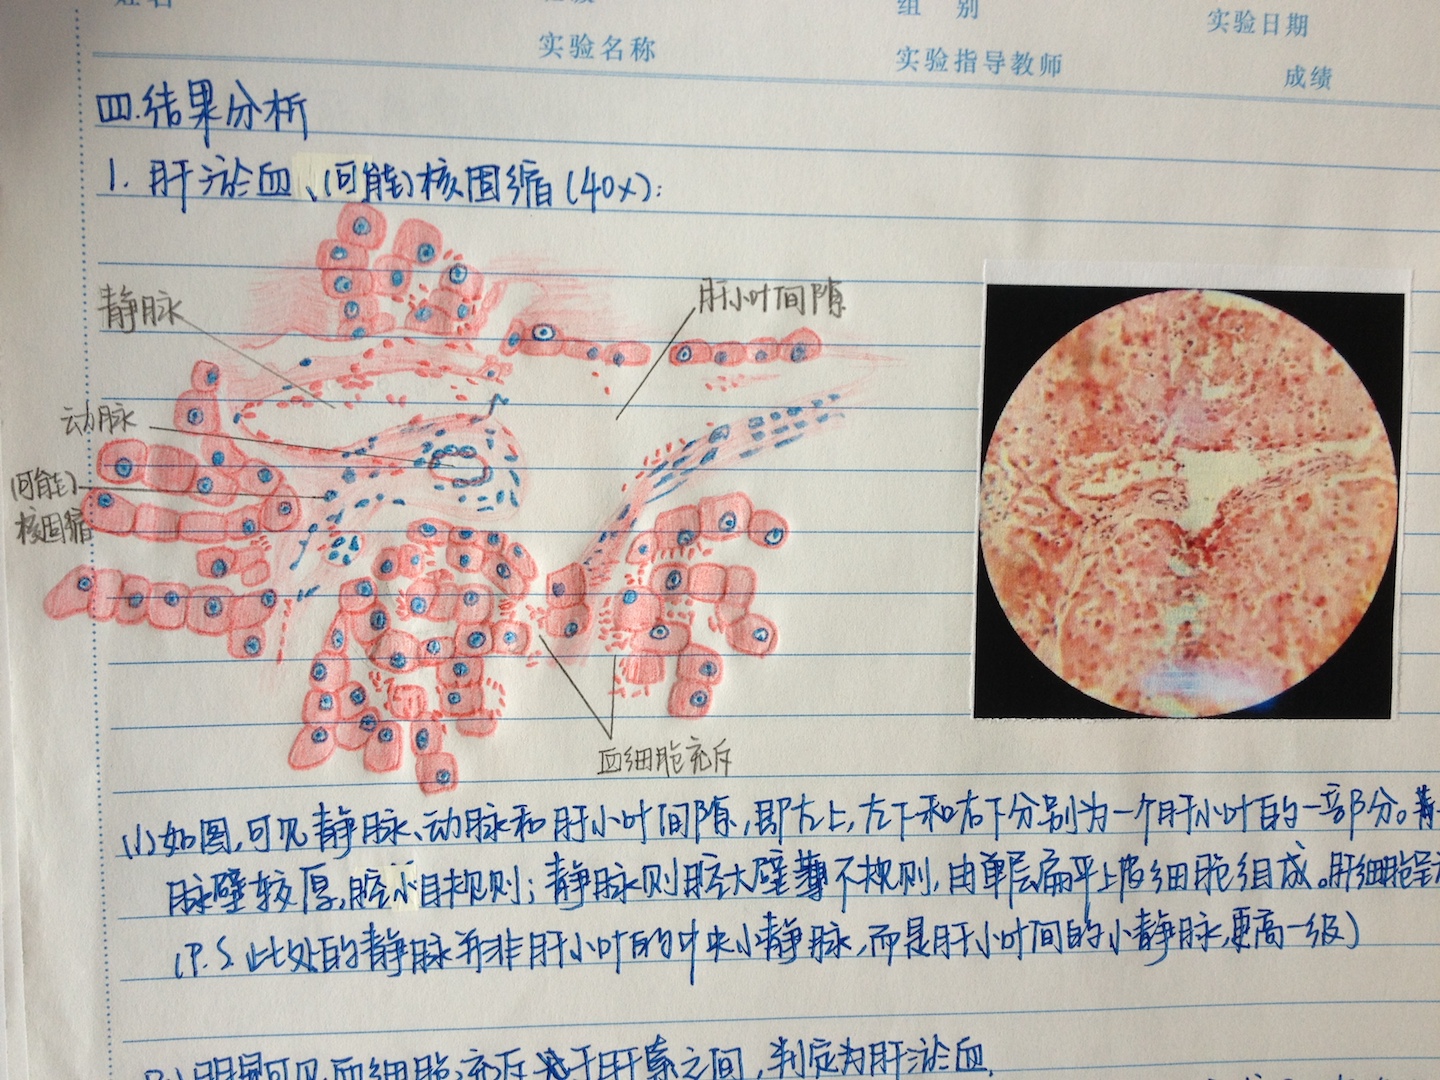 组 别
实验日期
实验名称
实验指导教师
成绩
四.结果分析
1. 肝淤血、(可能)核固缩(40x):
静脉
肝小叶间隙
动脉
(可能)
核固缩
血细胞充斥
(1)如图,可见静脉、动脉和肝小叶间隙,即左上,左下和右下分别为一个肝小叶的一部分。
脉壁较厚,腔小且规则;静脉则腔大壁薄不规则,由单层扁平上皮细胞组成。肝细胞呈
(P.S.此处的静脉并非肝小叶的中央小静脉,而是肝小叶间的小静脉,更高一级)
明显可见血细胞充斥于肝索之间,判定为肝淤血.